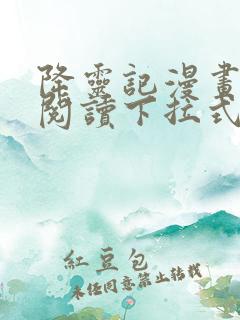 降靈記漫畫
閱讀下拉式
紅豆包
未經同意禁止轉載